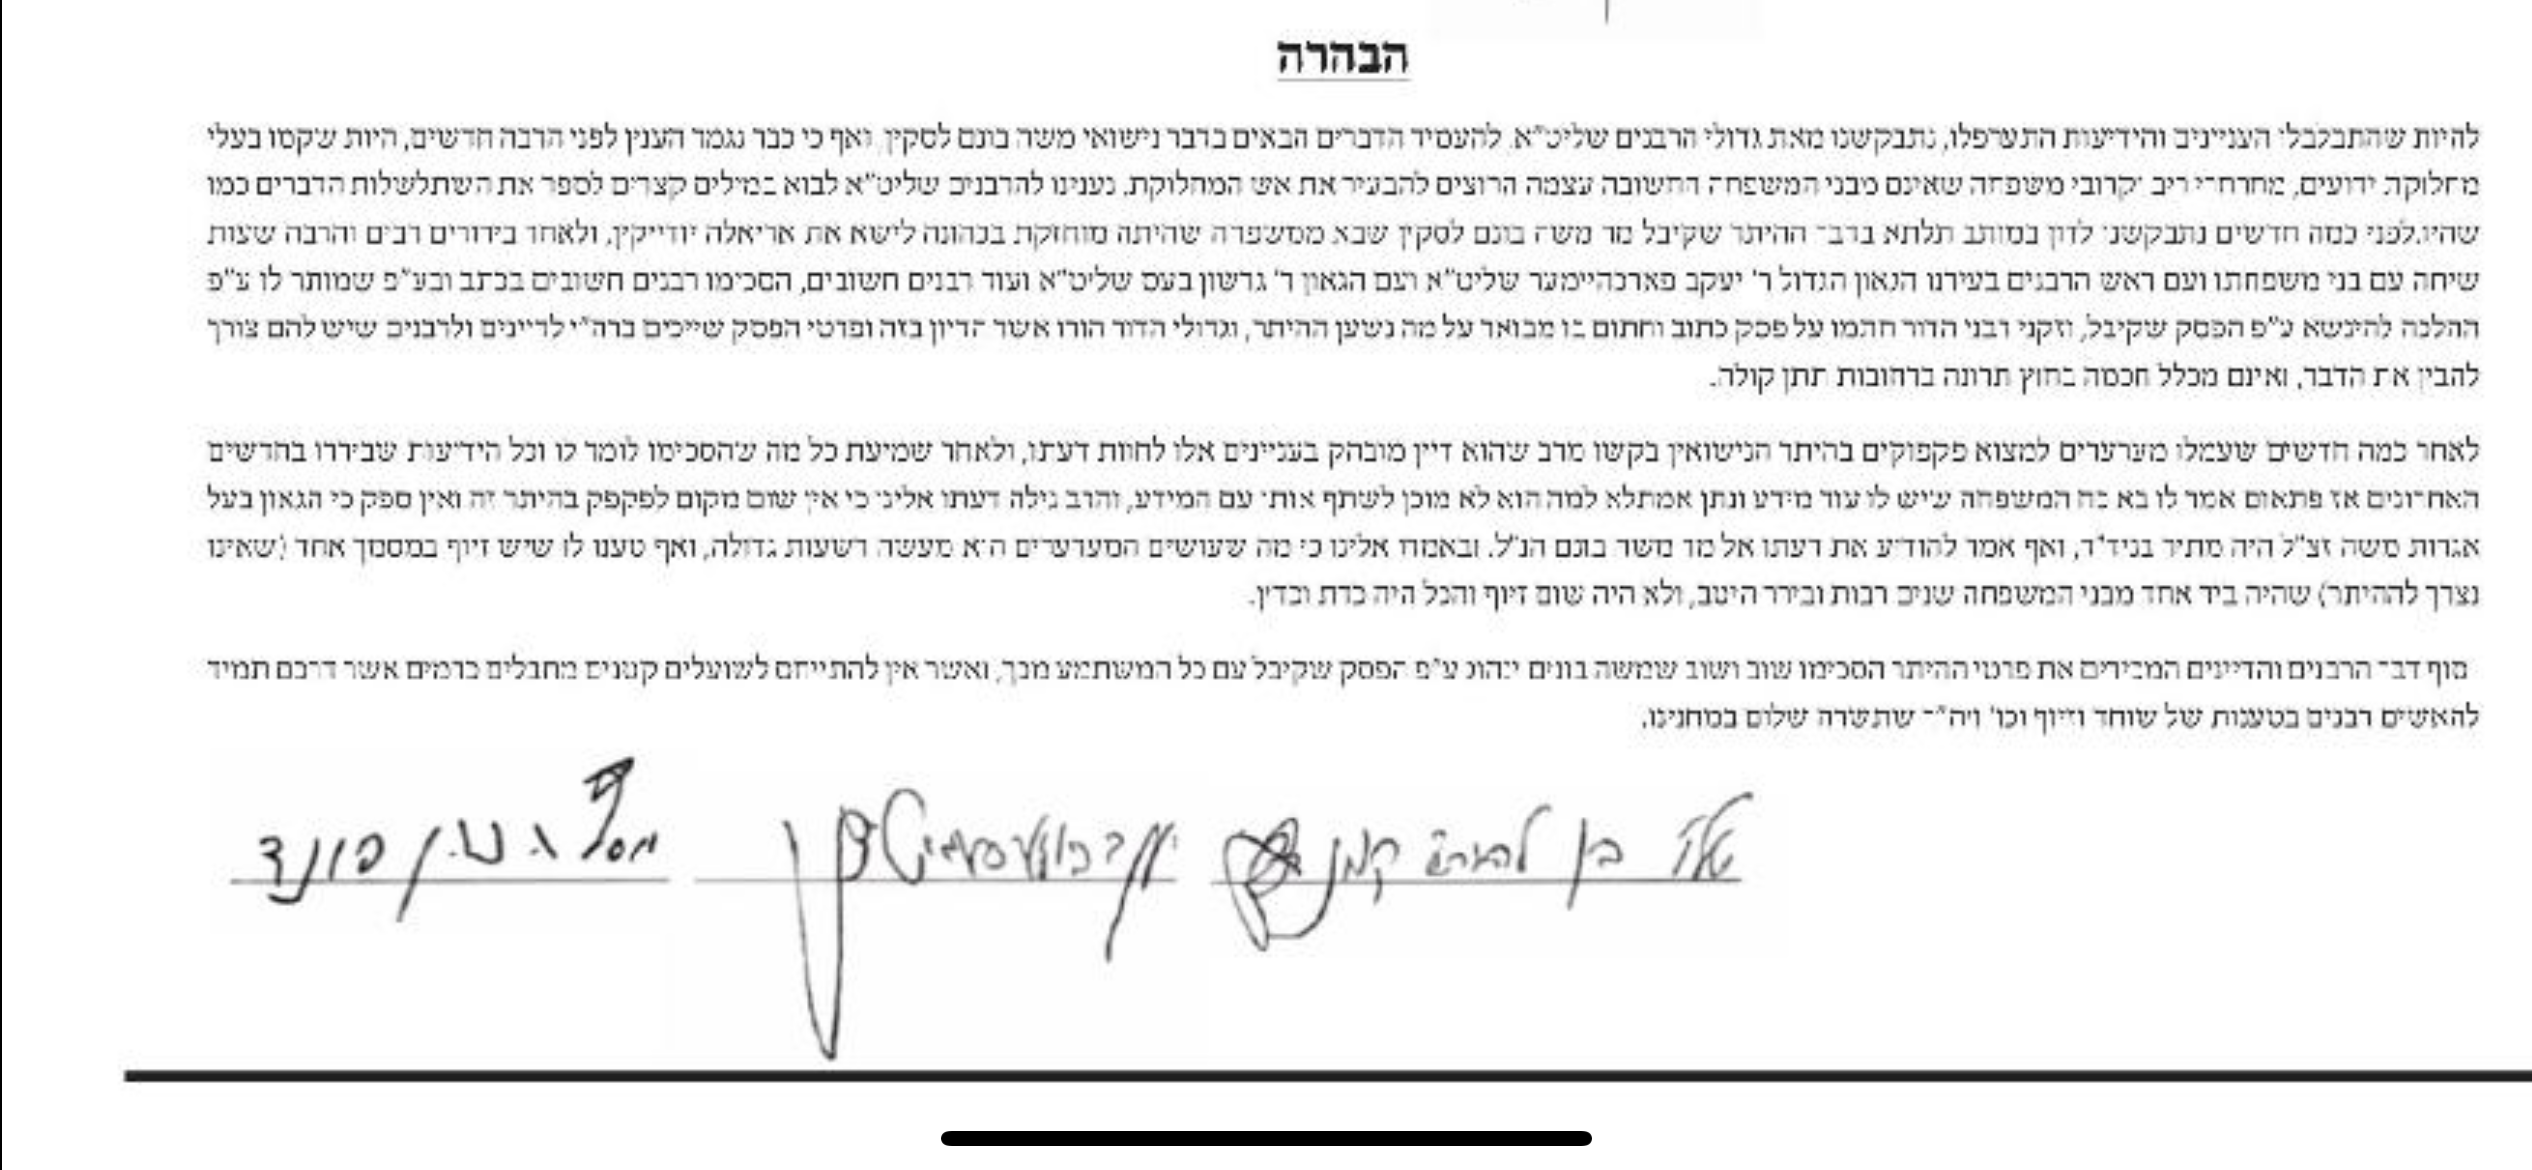 הבהרה
להיות שהתבלבלו העניינים והידיעות התערפלו, נתבקשנו מאת גדולי הרבנים שליט"א להעמיד הדברים הבאים בדבר נישואי משה בונם לסקין, ואף כי כבר נגמר הענין לפני הרבה חדשים, היות שקמו בעלי
מחלוקת ידועים, מחרחרי ריב וקרובי משפחה שאינם מבני המשפחה החשובה עצמה הרוצים להבעיר את אש המחלוקת, נענינו להרבנים שליט"א לבוא במילים קצרים לספר את השתלשלות הדברים כמו
שהיו. לפני כמה חדשים נתבקשנו לדון במותב תלתא בדבר ההיתר שקיבל מר משה בונם לסקין שבא ממשפחה שהיתה מוחזקת בכהונה לישא את אריאלה יודייקין, ולאחר בירורים רבים והרבה שעות
שיחה עם בני משפחתו ועם ראש הרבנים בעירנו הגאון הגדול ר' יעקב פארכהיימער שליט"א ועם הגאון ר' גרשון בעס שליט"א ועוד רבנים חשובים, הסכימו רבנים חשובים בכתב ובע"פ שמותר לו ע"פ
ההלכה להינשא ע"פ הפסק שקיבל, וזקני רבני הדור חתמו על פסק כתוב וחתום בו מבואר על מה נשען ההיתר, וגדולי הדור הורו אשר הדיון בזה ופרטי הפסק שייכים ברה"י לדיינים ולרבנים שיש להם צורך
להבין את הדבר, ואינם מכלל חכמה בחוץ תרונה ברחובות תתן קולה.
לאחר כמה חדשים שעמלו מערערים למצוא פקפוקים בהיתר הנישואין בקשו מרב שהוא דיין מובהק בעניינים אלו לחוות דעתו, ולאחר שמיעת כל מה שהסכימו לומר לו וכל הידיעות שביררו בחדשים
האחרונים אז פתאום אמר לו בא כח המשפחה שיש לו עוד מידע ונתן אמתלא למה הוא לא מוכן לשתף אותו עם המידע, והרב גילה דעתו אלינו כי אין שום מקום לפקפק בהיתר זה ואין ספק כי הגאון בעל
אגרות משה זצ"ל היה מתיר בניד"ד, ואף אמר להודיע את דעתו אל מר משה בונם הנ"ל. ובאמרו אלינו כי מה שעושים המערערים הוא מעשה רשעות גדולה, ואף טענו לו שיש זיוף במסמך אחד (שאינו
נצרך להההיתר) שהיה ביד אחד מבני המשפחה שנים רבות ובירר היטב, ולא היה שום זיוף והכל היה כדת וכדין.
סוף דבר הרבנים והדיינים המכירים את פרטי ההיתר הסכימו שוב ושוב שמשה בונים ינהוג ע"פ הפסק שקיבל עם כל המשתמע מכך, ואשר אין להתייחס לשועלים קטנים מחבלים כרמים אשר דרכם תמיד
להאשים רבנים בטענות של שוחד וזיוף וכו' ויה"ר שתשרה שלום במחנינו.